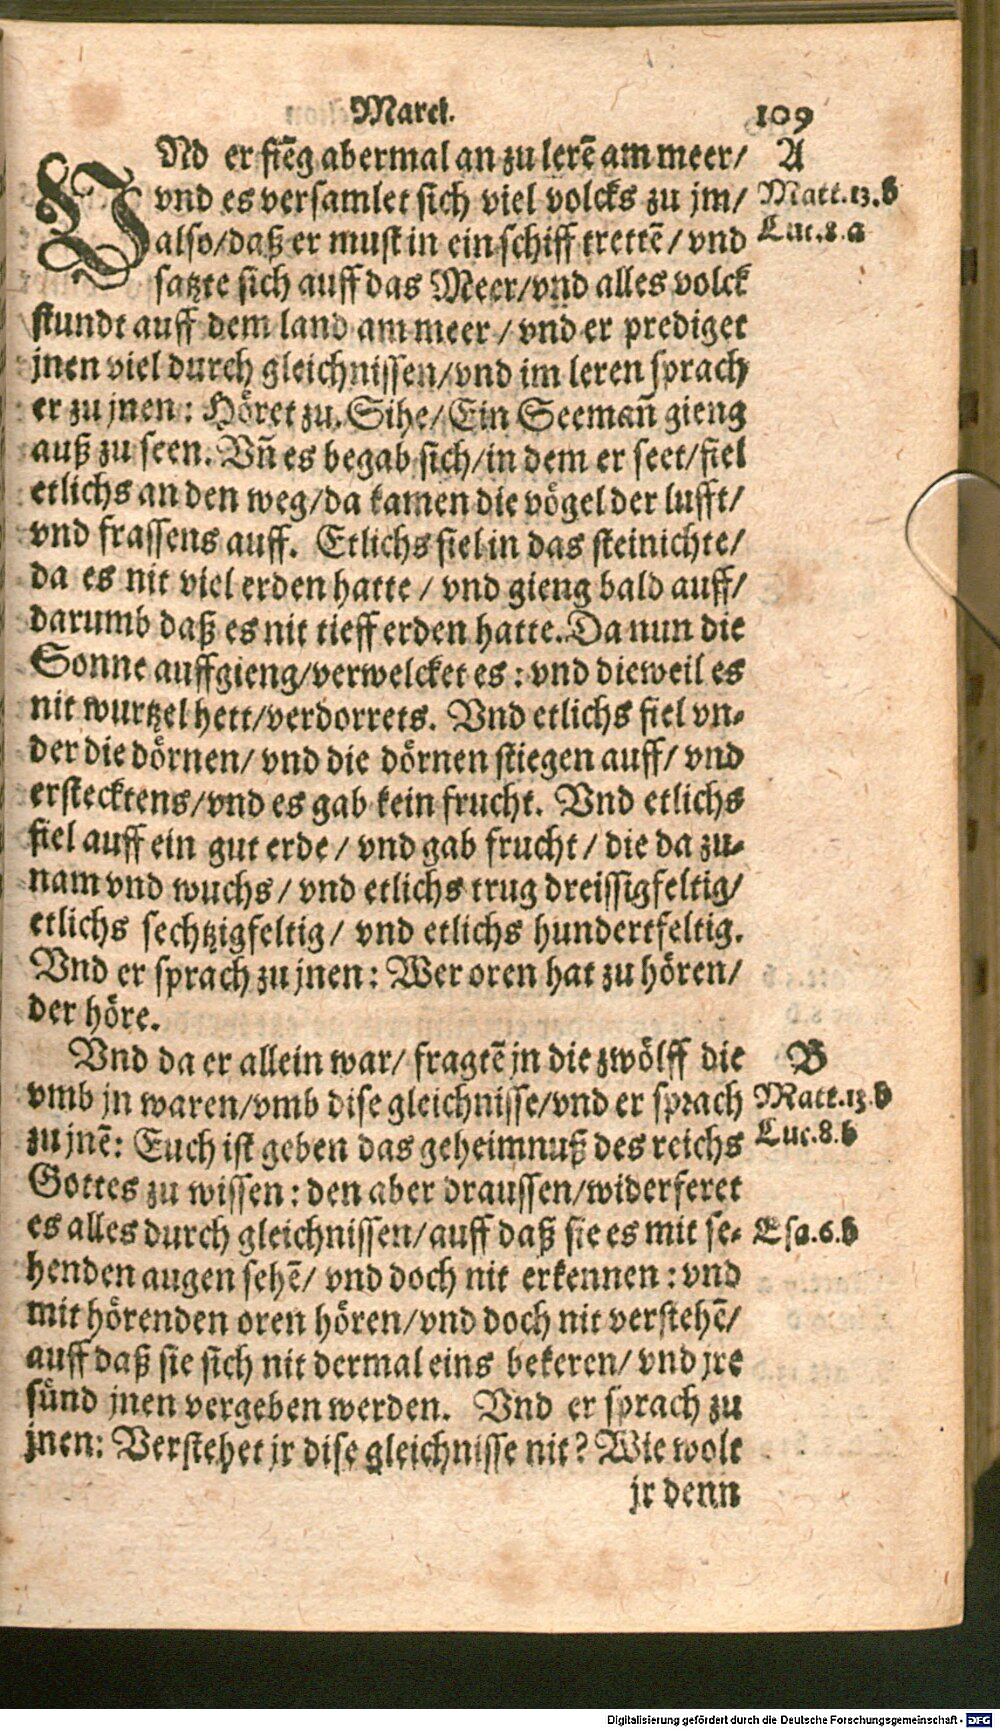 Marct.
109
VNd er fiēg abermal an zu lerē am meer/
A
vnd es versamlet sich viel volcks zu jm/
Matt.13.b
also/daß er must in ein schiff trettē/vnd
Luc.8.a
satzte sich auff das Meer/vnd alles volck
stundt auff dem land am meer/vnd er prediget
jnen viel durch gleichnissen/vnd im leren sprach
er zu jnen: Höret zu. Sihe/Ein Seemañ gieng
auß zu seen. Vñ es begab sich/in dem er seet/fiel
etlichs an den weg/da kamen die vögel der lufft/
vnd frassens auff. Etlichs fiel in das steinichte/
da es nit viel erden hatte/vnd gieng bald auff/
darumb daß es nit tieff erden hatte. Da nun die
Sonne auffgieng/verwelcket es: vnd dieweil es
nit wurtzel hett/verdorrets. Vnd etlichs fiel vn⸗
der die dörnen/vnd die dörnen stiegen auff/vnd
erstecktens/vnd es gab kein frucht. Vnd etlichs
fiel auff ein gut erde/vnd gab frucht/die da zu⸗
nam vnd wuchs/vnd etlichs trug dreissigfeltig/
etlichs sechtzigfeltig/vnd etlichs hundertfeltig.
Vnd er sprach zu jnen: Wer oren hat zu hören/
der höre.
Vnd da er allein war/fragtē jn die zwölff die
B
vmb jn waren/vmb dise gleichnisse/vnd er sprach
Matt.13.b
zu jnē: Euch ist geben das geheimnuß des reichs
Luc.8.b
Gottes zu wissen: den aber draussen/widerferet
es alles durch gleichnissen/auff daß sie es mit se⸗
Esa.6.b
henden augen sehē/vnd doch nit erkennen: vnd
mit hörenden oren hören/vnd doch nit verstehē/
auff daß sie sich nit dermal eins bekeren/vnd jre
sünd jnen vergeben werden. Vnd er sprach zu
jnen: Verstehet jr dise gleichnisse nit? Wie wolt
jr denn
Digitalisierung gefördert durch die Deutsche Forschungsgemeinschaft - DFG